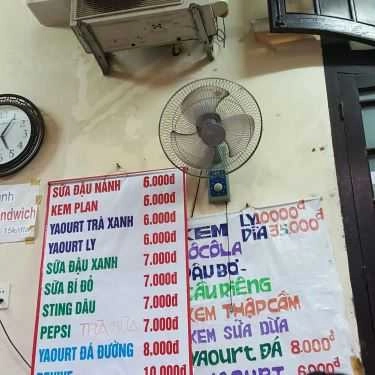 ndwich
SỮA ĐẬU NÀNH 6.000đ
KEM PLAN 6.000đ
YAOURT TRÀ XANH 6.000đ
YAOURT LY 6.000đ
SỮA ĐẬU XANH 7.000đ
SỮA BÍ ĐỎ 7.000đ
STING DÂU 7.000đ
PEPSI TRÀ SỮA 7.000đ
YAOURT ĐÁ ĐƯỜNG 8.000đ
10.000đ
KEM LY 10000đ
DĨA 35.000đ
SẦU RIÊNG
KEM THẬP CẨM
KEM SỮA DỪA
YAOURT ĐÁ 8.000đ
YAOURT 6.000đ